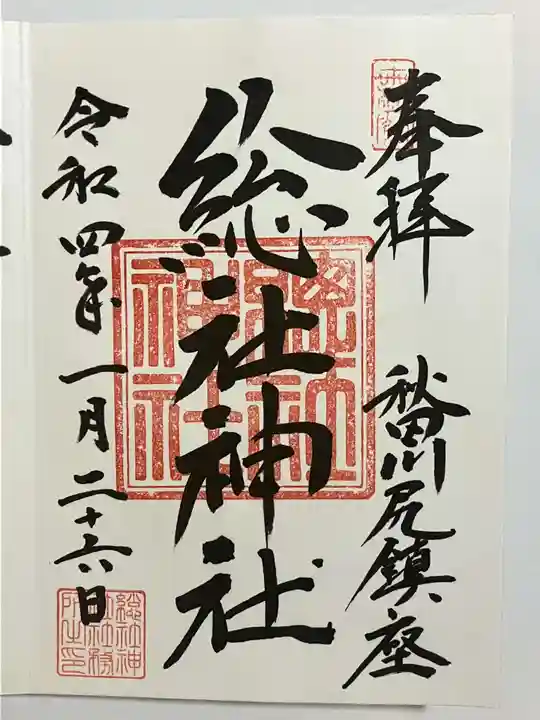 奉拝
秋田川尻鎮座
総社神社
令和四年一月二十六日
總社神
社社務
所之印